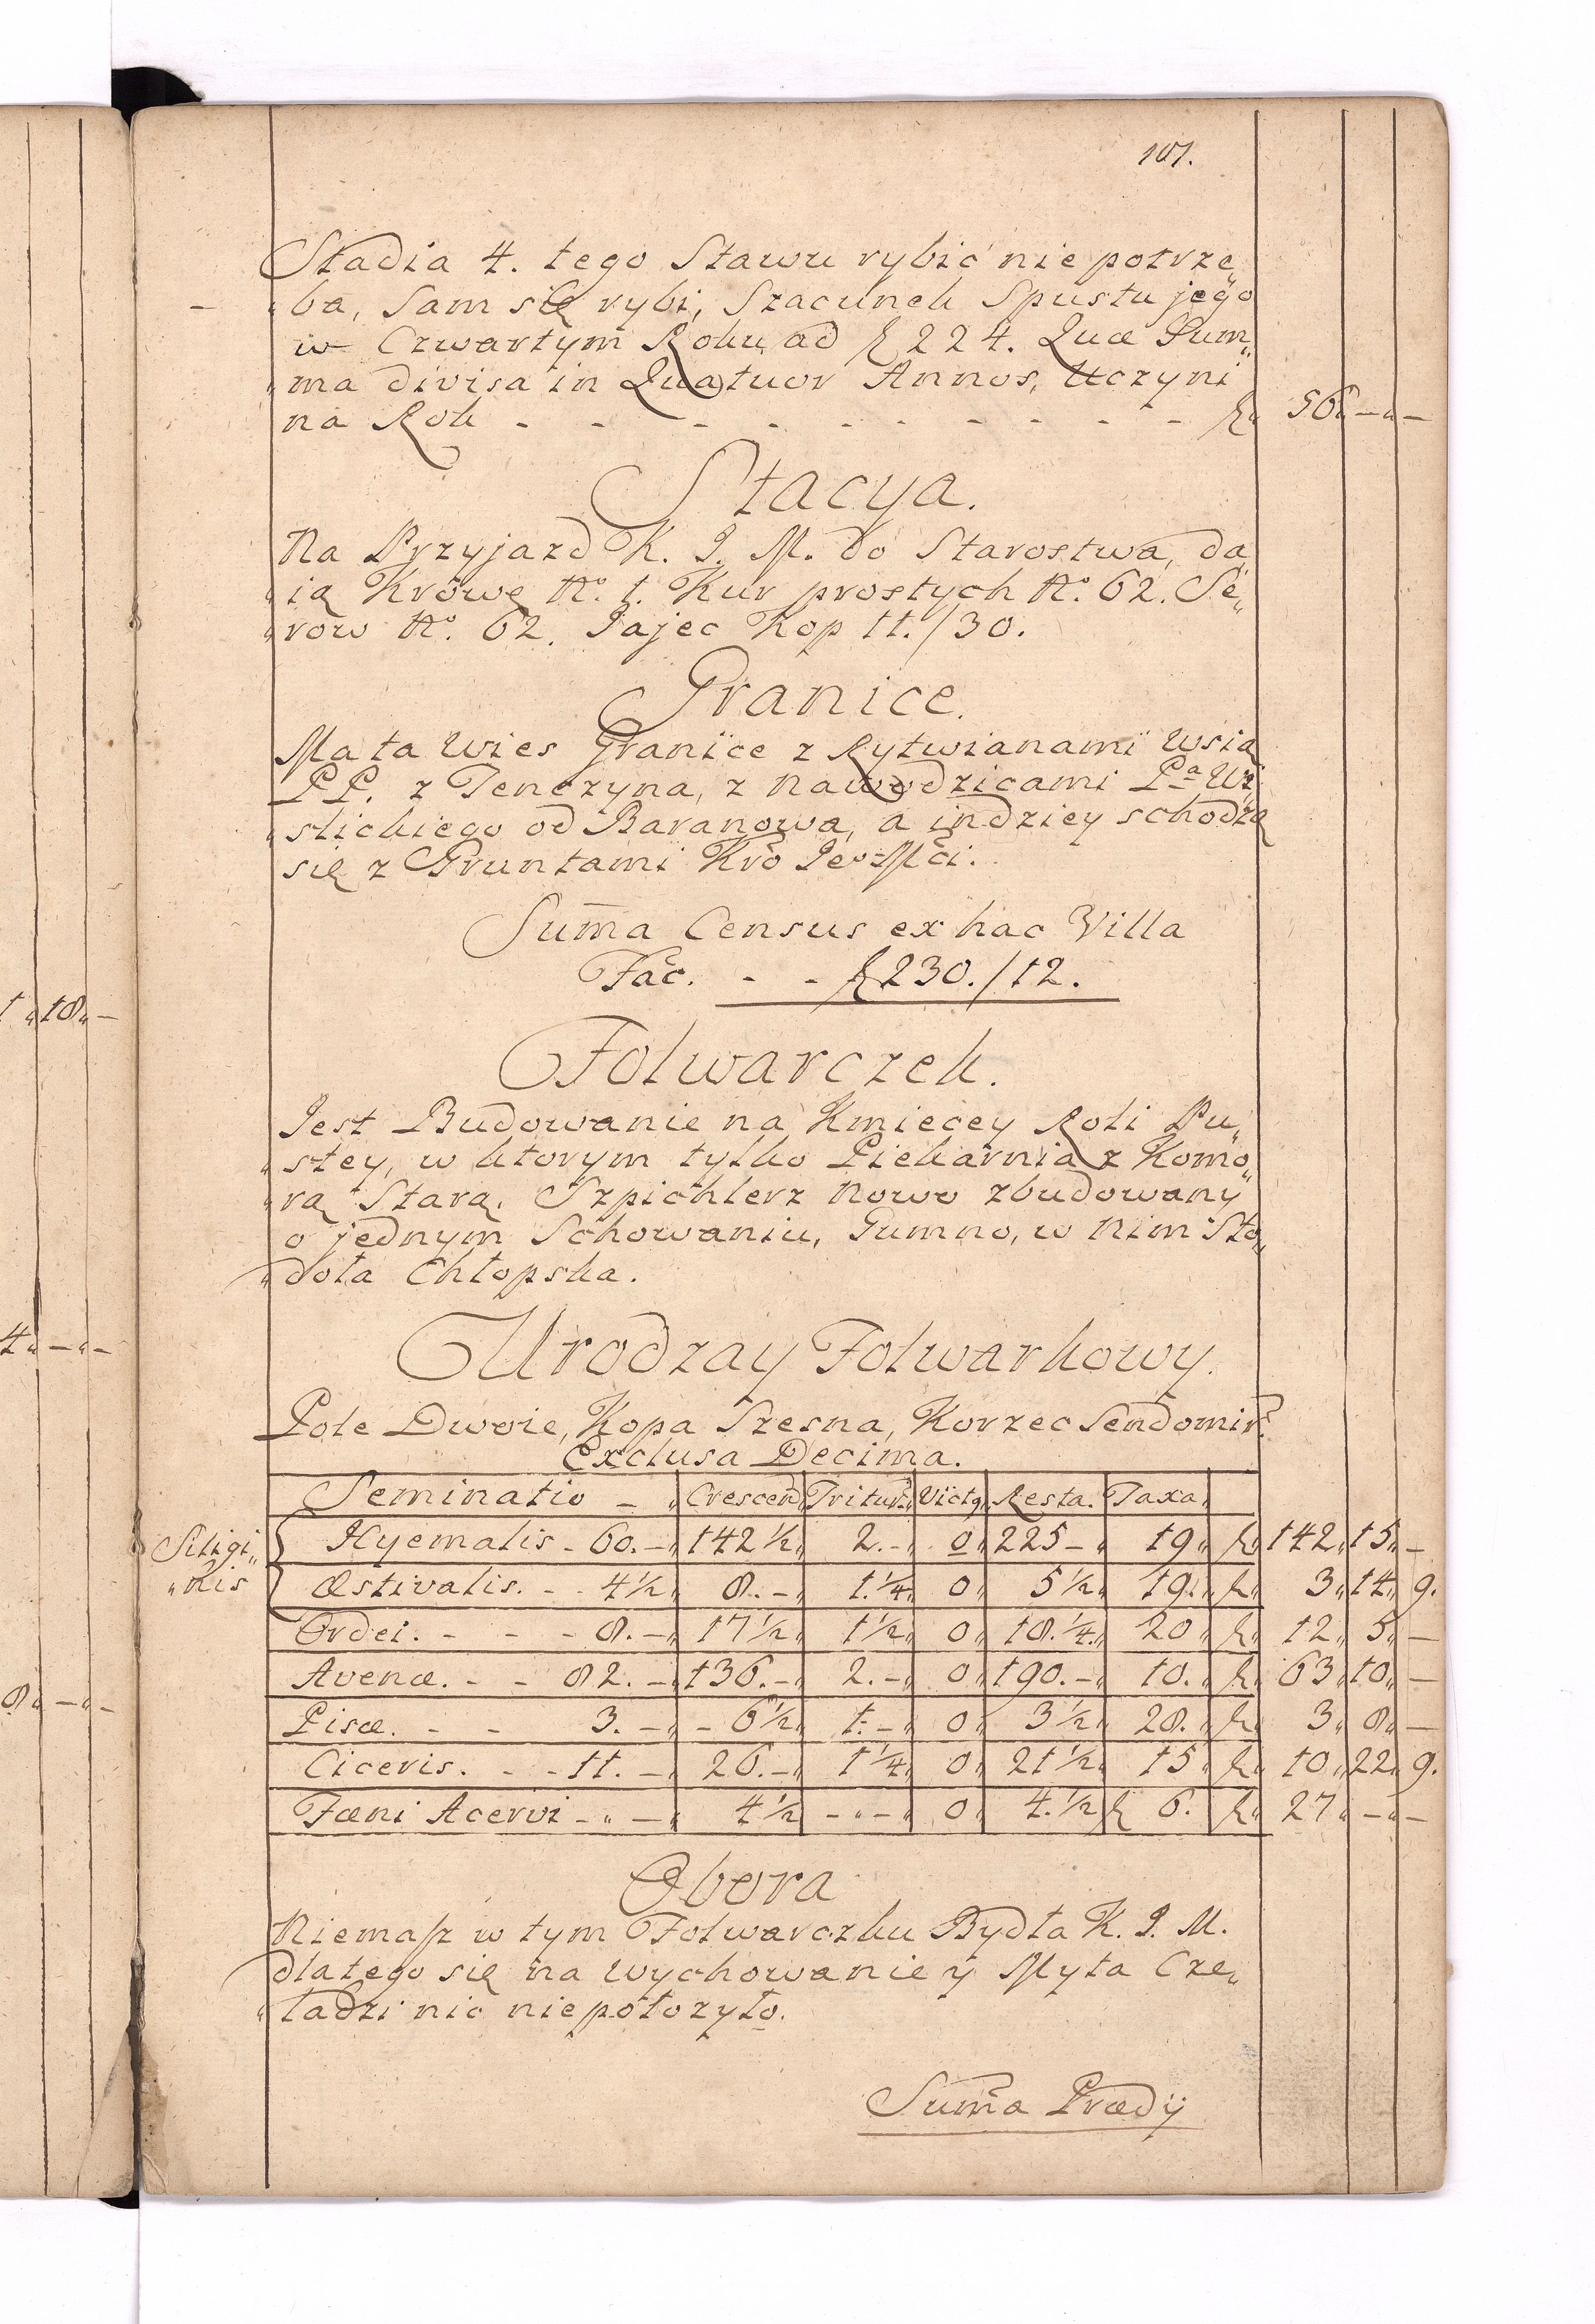 101.
Stadia 4. tego Stawu rybić nie potrze„
„ba, Sam się rybi, Szacunek Spustu jego
w Czwartym Roku, ad f 224. Quæ Sum„
„ma divisa in Quatuor Annos, Uczyni
na Rok - - - - - - - - - - f„ 56„—„—
Stacya.
Na Przyjazd K. J. M. do Starostwa, da„
„ią Krowę No. 1. Kur prostych No. 62. Se„
„row No. 62. Jajec Kop 11./30.
Granice.
Ma ta Wies Granice z Rytwianami Wsią
PP. z Tenczyna, z Nawodzicami Pa Wi„
„slickiego od Baranowa, a indziey schodzą
się z Gruntami Kro Jeo Mci.
Suma Census ex hac Villa
Fac. - - f 230./12.
Folwarczek.
Jest Budowanie na Kmiecey Roli Pu„
„stey, w ktorym tylko Piekarnia z Komo„
„rą Starą. Szpichlerz Nowo zbudowany
o jednym Schowaniu, Gumno, w Nim Sto„
„doła Chłopska.
Urodzay Folwarkowy.
Pole Dwoie, Kopa Szesna, Korzec Sendomir.
Exclusa Decima.
Seminatio — „ Crescen„ Tritur.„ Victq„ Resta. Taxa„
Siligi„
„nis
Hyemalis - 60.—„ 142 1/2„ 2.—„ 0„ 225—„ 19„ f„ 142„ 15„ —
Æstivalis. - - 4 1/2„ 8.—„ 1.1/4„ 0„ 5 1/2„ 19.„ f„ 3„ 14„ 9.
Ordei. - - - 8.—„ 17 1/2„ 1 1/2„ 0„ 18.1/4.„ 20„ f„ 12„ 5„ —
Avenæ. - - 82.—„ 136.—„ 2.—„ 0„ 190.—„ 10.„ f„ 63„ 10„ —
Pisæ. - - 3.—„ - 6 1/2„ 1.—„ 0„ 3 1/2„ 28.„ f„ 3„ 8„ —
Ciceris. - - 11.—„ 26.—„ 1 1/4„ 0„ 21 1/2„ 15„ f„ 10„ 22„ 9.
Fæni Acervi -„—„ 4 1/2 -„—„ 0„ 4.1/2 f 6. f„ 27„ —„—
Obora
Niemasz w tym Folwarczku Bydła K. J. M.
dlatego się na Wychowanie y Myta Cze„
„ladzi nic niepołozyło.
Suma Prædÿ
1„ 18„ —
4„ —„ —
8„ —„ —